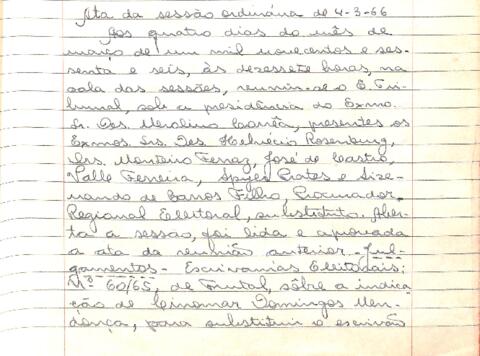 Ata da sessão ordinária de 4-3-66
Aos quatro dias do mês de
março de um mil novecentos e ses-
senta e seis, às dezessete horas, na
sala das sessões, reuniu-se o E. Tri-
bunal, sob a presidência do Exmo.
Sr. Des. Merolino Corrêa, presentes os
Exmos. Srs. Des. Helvécio Rosenburg,
Drs. Monteiro Ferraz, José de Castro,
Valle Ferreira, Prates e Size-
nando de Barros Filho, Procurador
Regional Eleitoral, substituto. Aber-
ta a sessão, foi lida e aprovada
a ata da reunião anterior. Jul-
gamentos - Escrivanias Eleitorais:
Nº 60/65, de Frutal, sôbre a indica-
ção de Cinomar Domingos Men-
donça, para substituir o escrivão